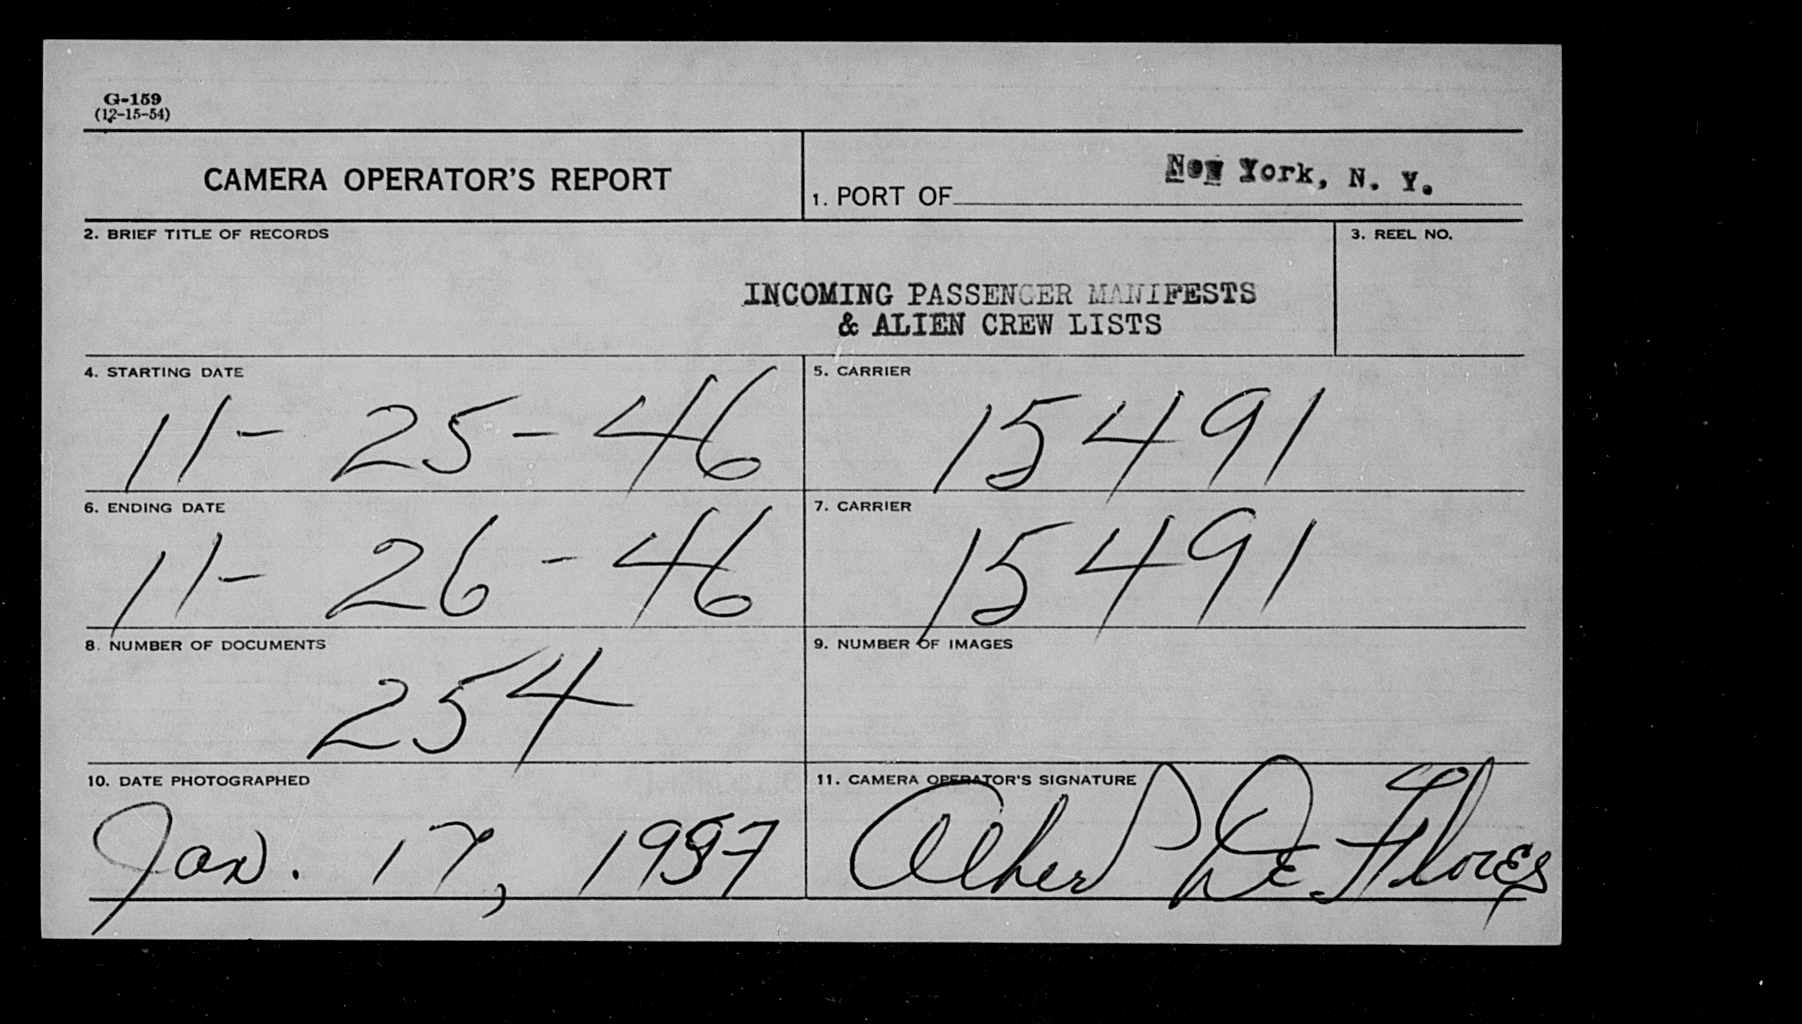 G-159
(12-15-54)
CAMERA OPERATOR'S REPORT
1. PORT OF New York, N. Y.
2. BRIEF TITLE OF RECORDS
INCOMING PASSENGER MANIFESTS
& ALIEN CREW LISTS
3. REEL NO.
4. STARTING DATE
11-25-46
5. CARRIER
15491
6. ENDING DATE
11-26-46
7. CARRIER
15491
8. NUMBER OF DOCUMENTS
254
9. NUMBER OF IMAGES
10. DATE PHOTOGRAPHED
Jan. 17, 1957
11. CAMERA OPERATOR'S SIGNATURE
Albert De Flores